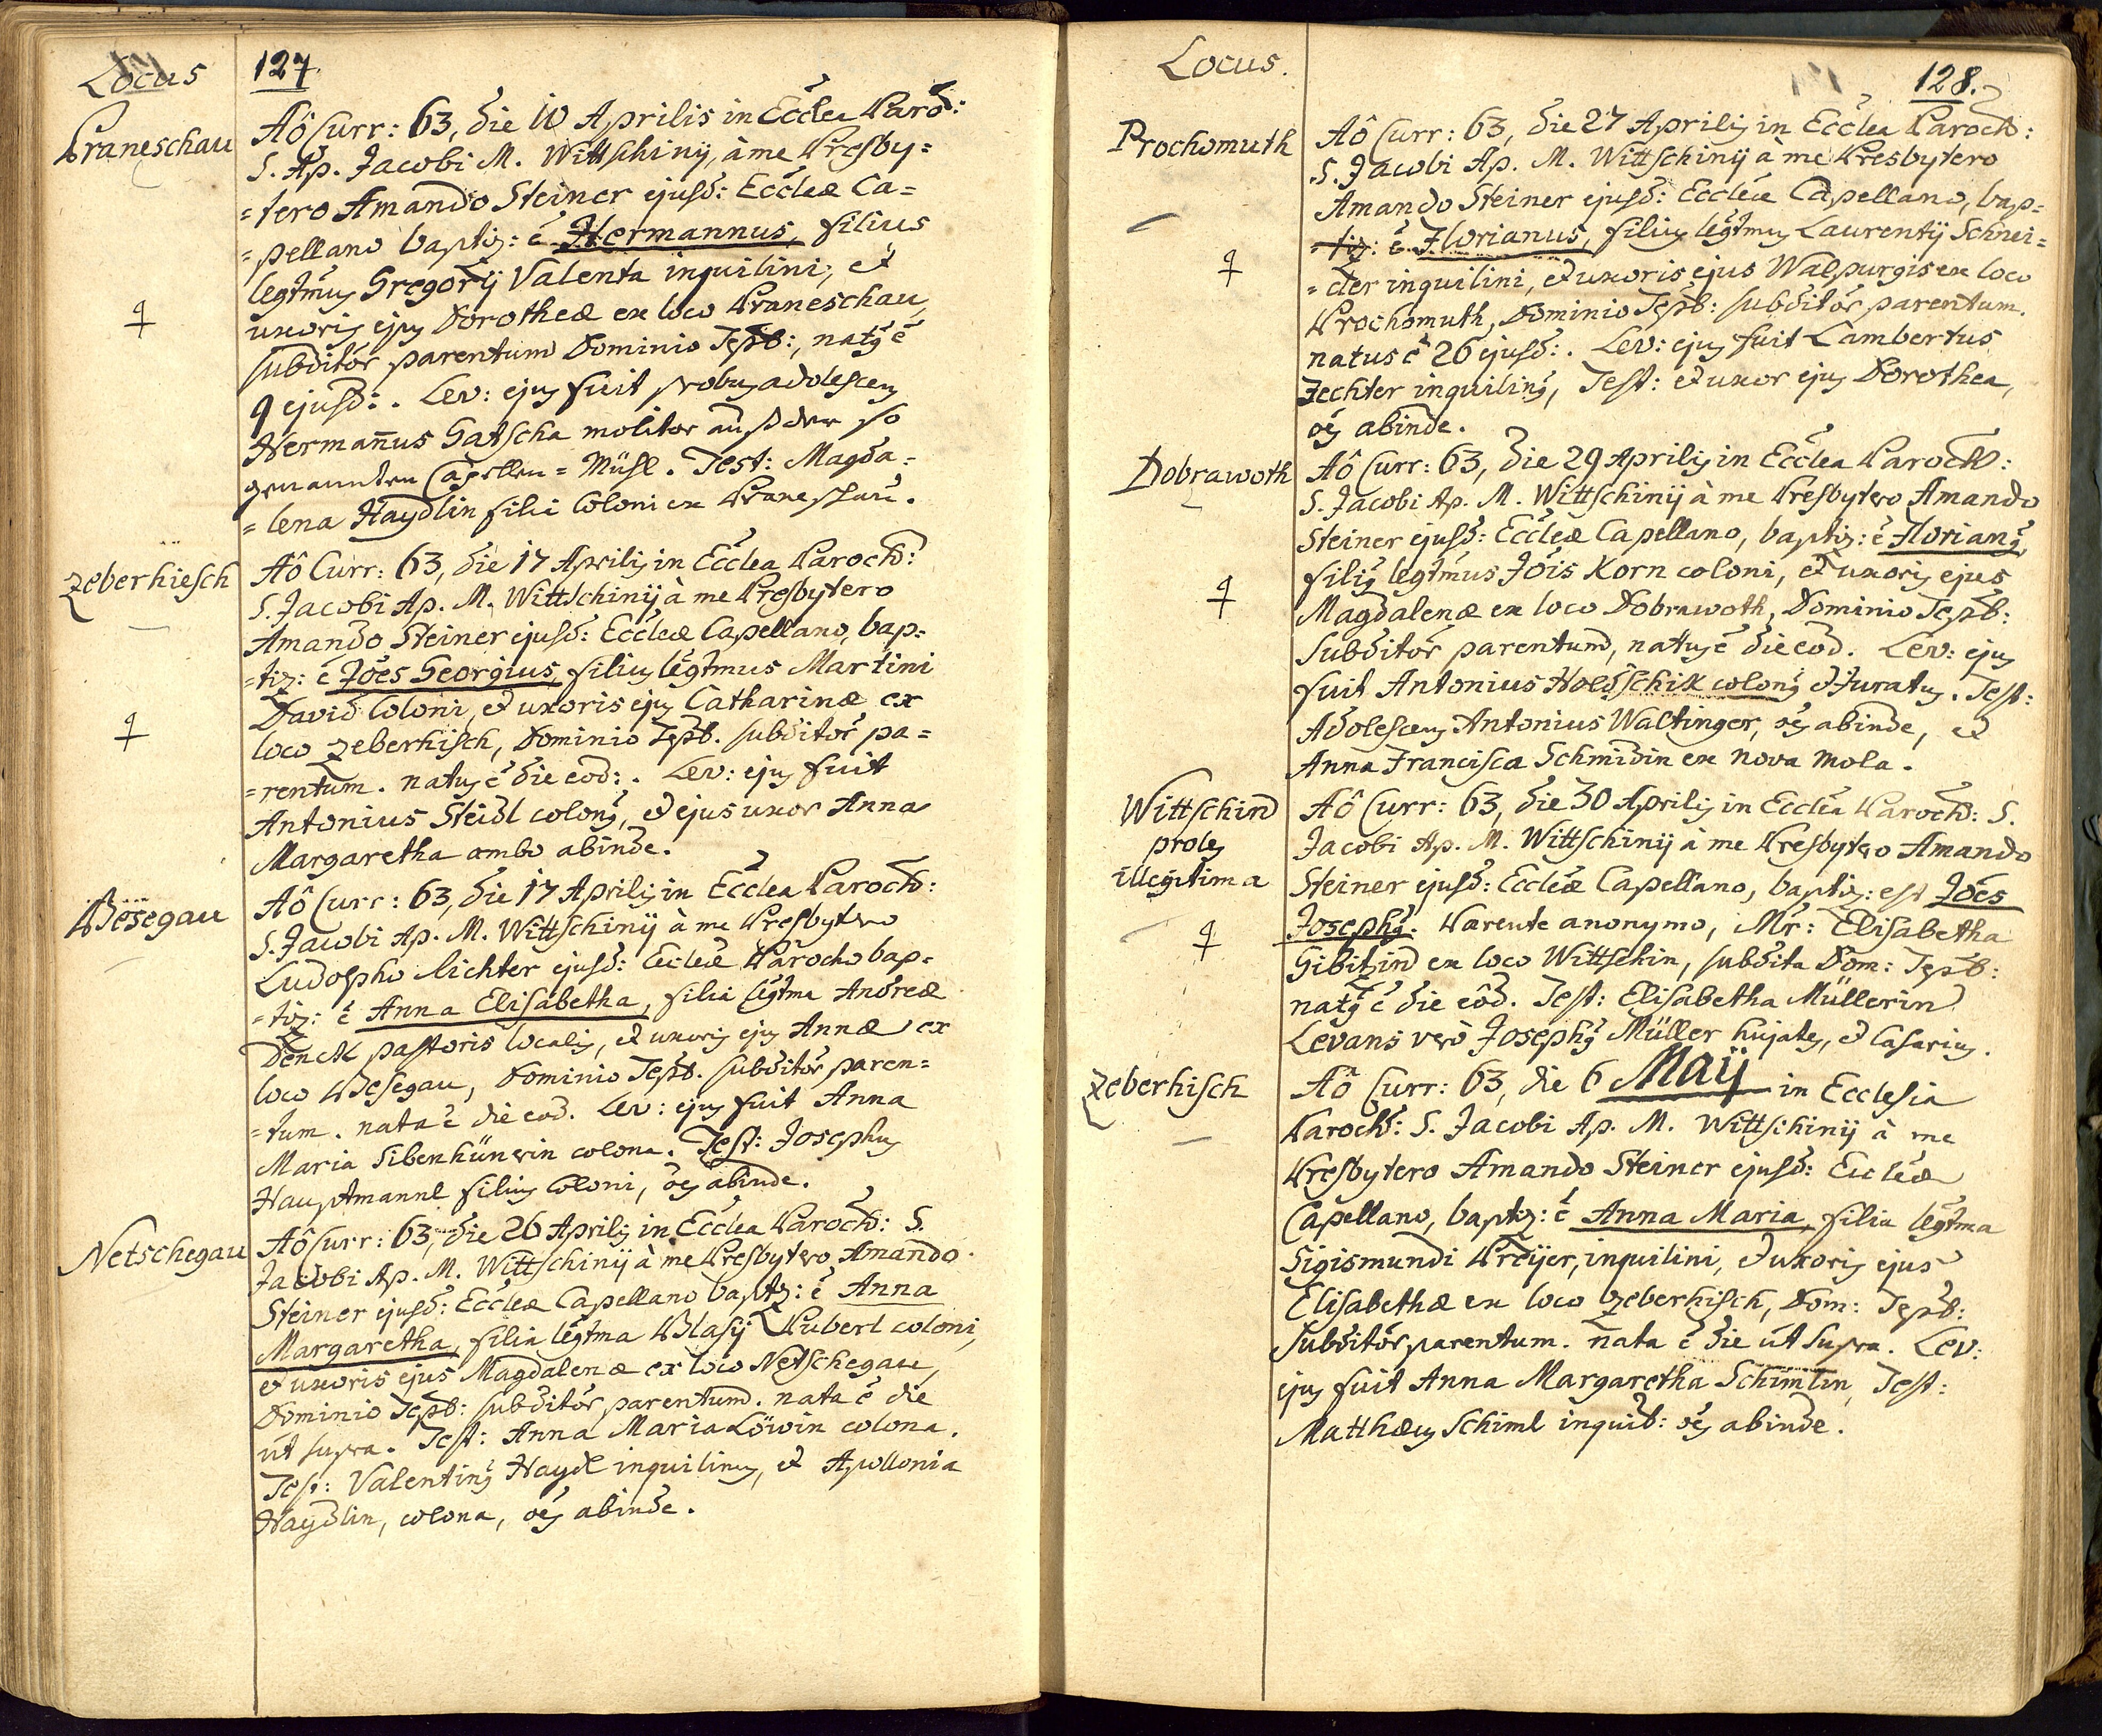 Locus
127.
Praneschau
Aô Curr: 63, die 10 Aprilis in Eccl̃ea Paro͠ch:
S. Ap. Jacobi M. Wittschinij, à me Presby=
=tero Amando Steiner ejusd: Eccl̃eæ Ca=
=pellano baptiz: ẽ Hermannus, filius
legtm̃us Gregorij Valenta inquilini, et
uxoris ejus Dorotheæ ex loco Praneschau,
subditor̃ parentum Dominio Tepl:, natus ẽ
9 ejusd: . Lev: ejus fuit probus adolescens
Herman̄us Gatscha molitor auß der so
genannten Capellen = Mühl. Test: Magda=
=lena Haydlin filia Coloni ex Praneschau.
Zeberhiesch
Aô Curr: 63, die 17 Aprilis in Eccl̃ea Paroch:
S. Jacobi Ap. M. Wittschinij à me Presbytero
Amando Steiner ejusd: Eccl̃eæ Capellano, bap=
=tiz: ẽ Jões Georgius, filius legtm̃us Martini
David Coloni, et uxoris ejus Catharinæ ex
loco Zeberhisch, Dominio Tepl. subditor̃ pa=
=rentum. natus ẽ die eod: . Lev: ejus fuit
Antonius Steidl colonus, et ejus uxor Anna
Margaretha ambo abinde.
Pösegau
Aô Curr: 63, die 17 Aprilis in Eccl̃ea Paroch:
S. Jacobi Ap. M. Wittschinij à me Presbytero
Ludolpho Richter ejusd: Eccl̃eæ Parocho bap=
=tiz: ẽ Anna Elisabetha, filia legtm̃a Andreæ
Denck pastoris localis, et uxoris ejus Annæ ex
loco Pesegau, Dominio Tepl. subditor̃ paren=
=tum. nata ẽ die eod. Lev: ejus fuit Anna
Maria Sibenhünerin colona. Test: Josephus
Hauptmannl filius Coloni, oẽs abinde.
Netschegau
Aô Curr: 63, die 26 Aprilis in Eccl̃ea Paroch: S.
Jacobi Ap. M. Wittschinij à me Presbytero Amando
Steiner ejusd: Eccl̃eæ Capellano baptz: ẽ Anna
Margaretha, filia legtm̃a Blasij Puberl coloni,
et uxoris ejus Magdalenæ ex loco Netschegau,
Dominio Tepl: subditor̃ parentum. nata ẽ die
ut supra. Test: Anna Maria Löwin colona.
Test: Valentinus Haydl inquilinus, et Apollonia
Haydlin, colona, oẽs abinde.
Locus.
128.
Prochomuth
Aô Curr: 63, die 27 Aprilis in Eccl̃ea Paroch:
S. Jacobi Ap. M. Wittschinij à me Presbytero
Amando Steiner ejusd: Eccl̃eæ Capellano, bap=
=tiz: ẽ Florianus, filius legtm̃us Laurentij Schnei=
=der inquilini, et uxoris ejus Walpurgis ex loco
Prochomuth, Dominio Tepl: subditor̃ parentum.
natus ẽ 26 ejusd: . Lev: ejus fuit Lambertus
Zechter inquilinus, Test: et uxor ejus Dorothea,
oẽs abinde.
Dobrawoth
Aô Curr: 63, die 29 Aprilis in Eccl̃ea Paroch:
S. Jacobi Ap. M. Wittschinij à me Presbytero Amando
Steiner ejusd: Eccl̃eæ Capellano, baptiz: ẽ Florianus,
filius legtm̃us Jõis Korn coloni, et uxoris ejus
Magdalenæ ex loco Dobrawoth, Dominio Tepl:
Subditor̃ parentum, natus ẽ die eod. Lev: ejus
fuit Antonius Holdschik colonus et Juratus. Test:
Adolescens Antonius Waltinger, oẽs abinde, et
Anna Francisca Schmidin ex nova mola.
Wittschin
proles
illegitima
Aô Curr: 63, die 30 Aprilis in Eccl̃ea Paroch: S.
Jacobi Ap. M. Wittschinij à me Presbytero Amando
Steiner ejusd: Eccl̃eæ Capellano, baptiz: est Jões
Josephus. Parente anonymo, Mr̃: Elisabetha
Gibizin ex loco Wittschin, subdita Dom: Tepl:
natus ẽ die eod. Test: Elisabetha Müllerin
Levans verò Josephus Müller hujates, et Casarius.
Zeberhisch
Aô Curr: 63, die 6 Maij in Ecclesia
Paroch: S. Jacobi Ap. M. Wittschinij à me
Presbytero Amando Steiner ejusd: Eccl̃eæ
Capellano, baptiz: ẽ Anna Maria, filia legtm̃a
Sigismundi Preijer, inquilini, et uxoris ejus
Elisabethæ ex loco Zeberhisch, Dom: Tepl:
Subditor̃ parentum. nata ẽ die ut Supra. Lev:
ejus fuit Anna Margaretha Schimlin, Test:
Matthæus Schiml inquil: oẽs abinde.